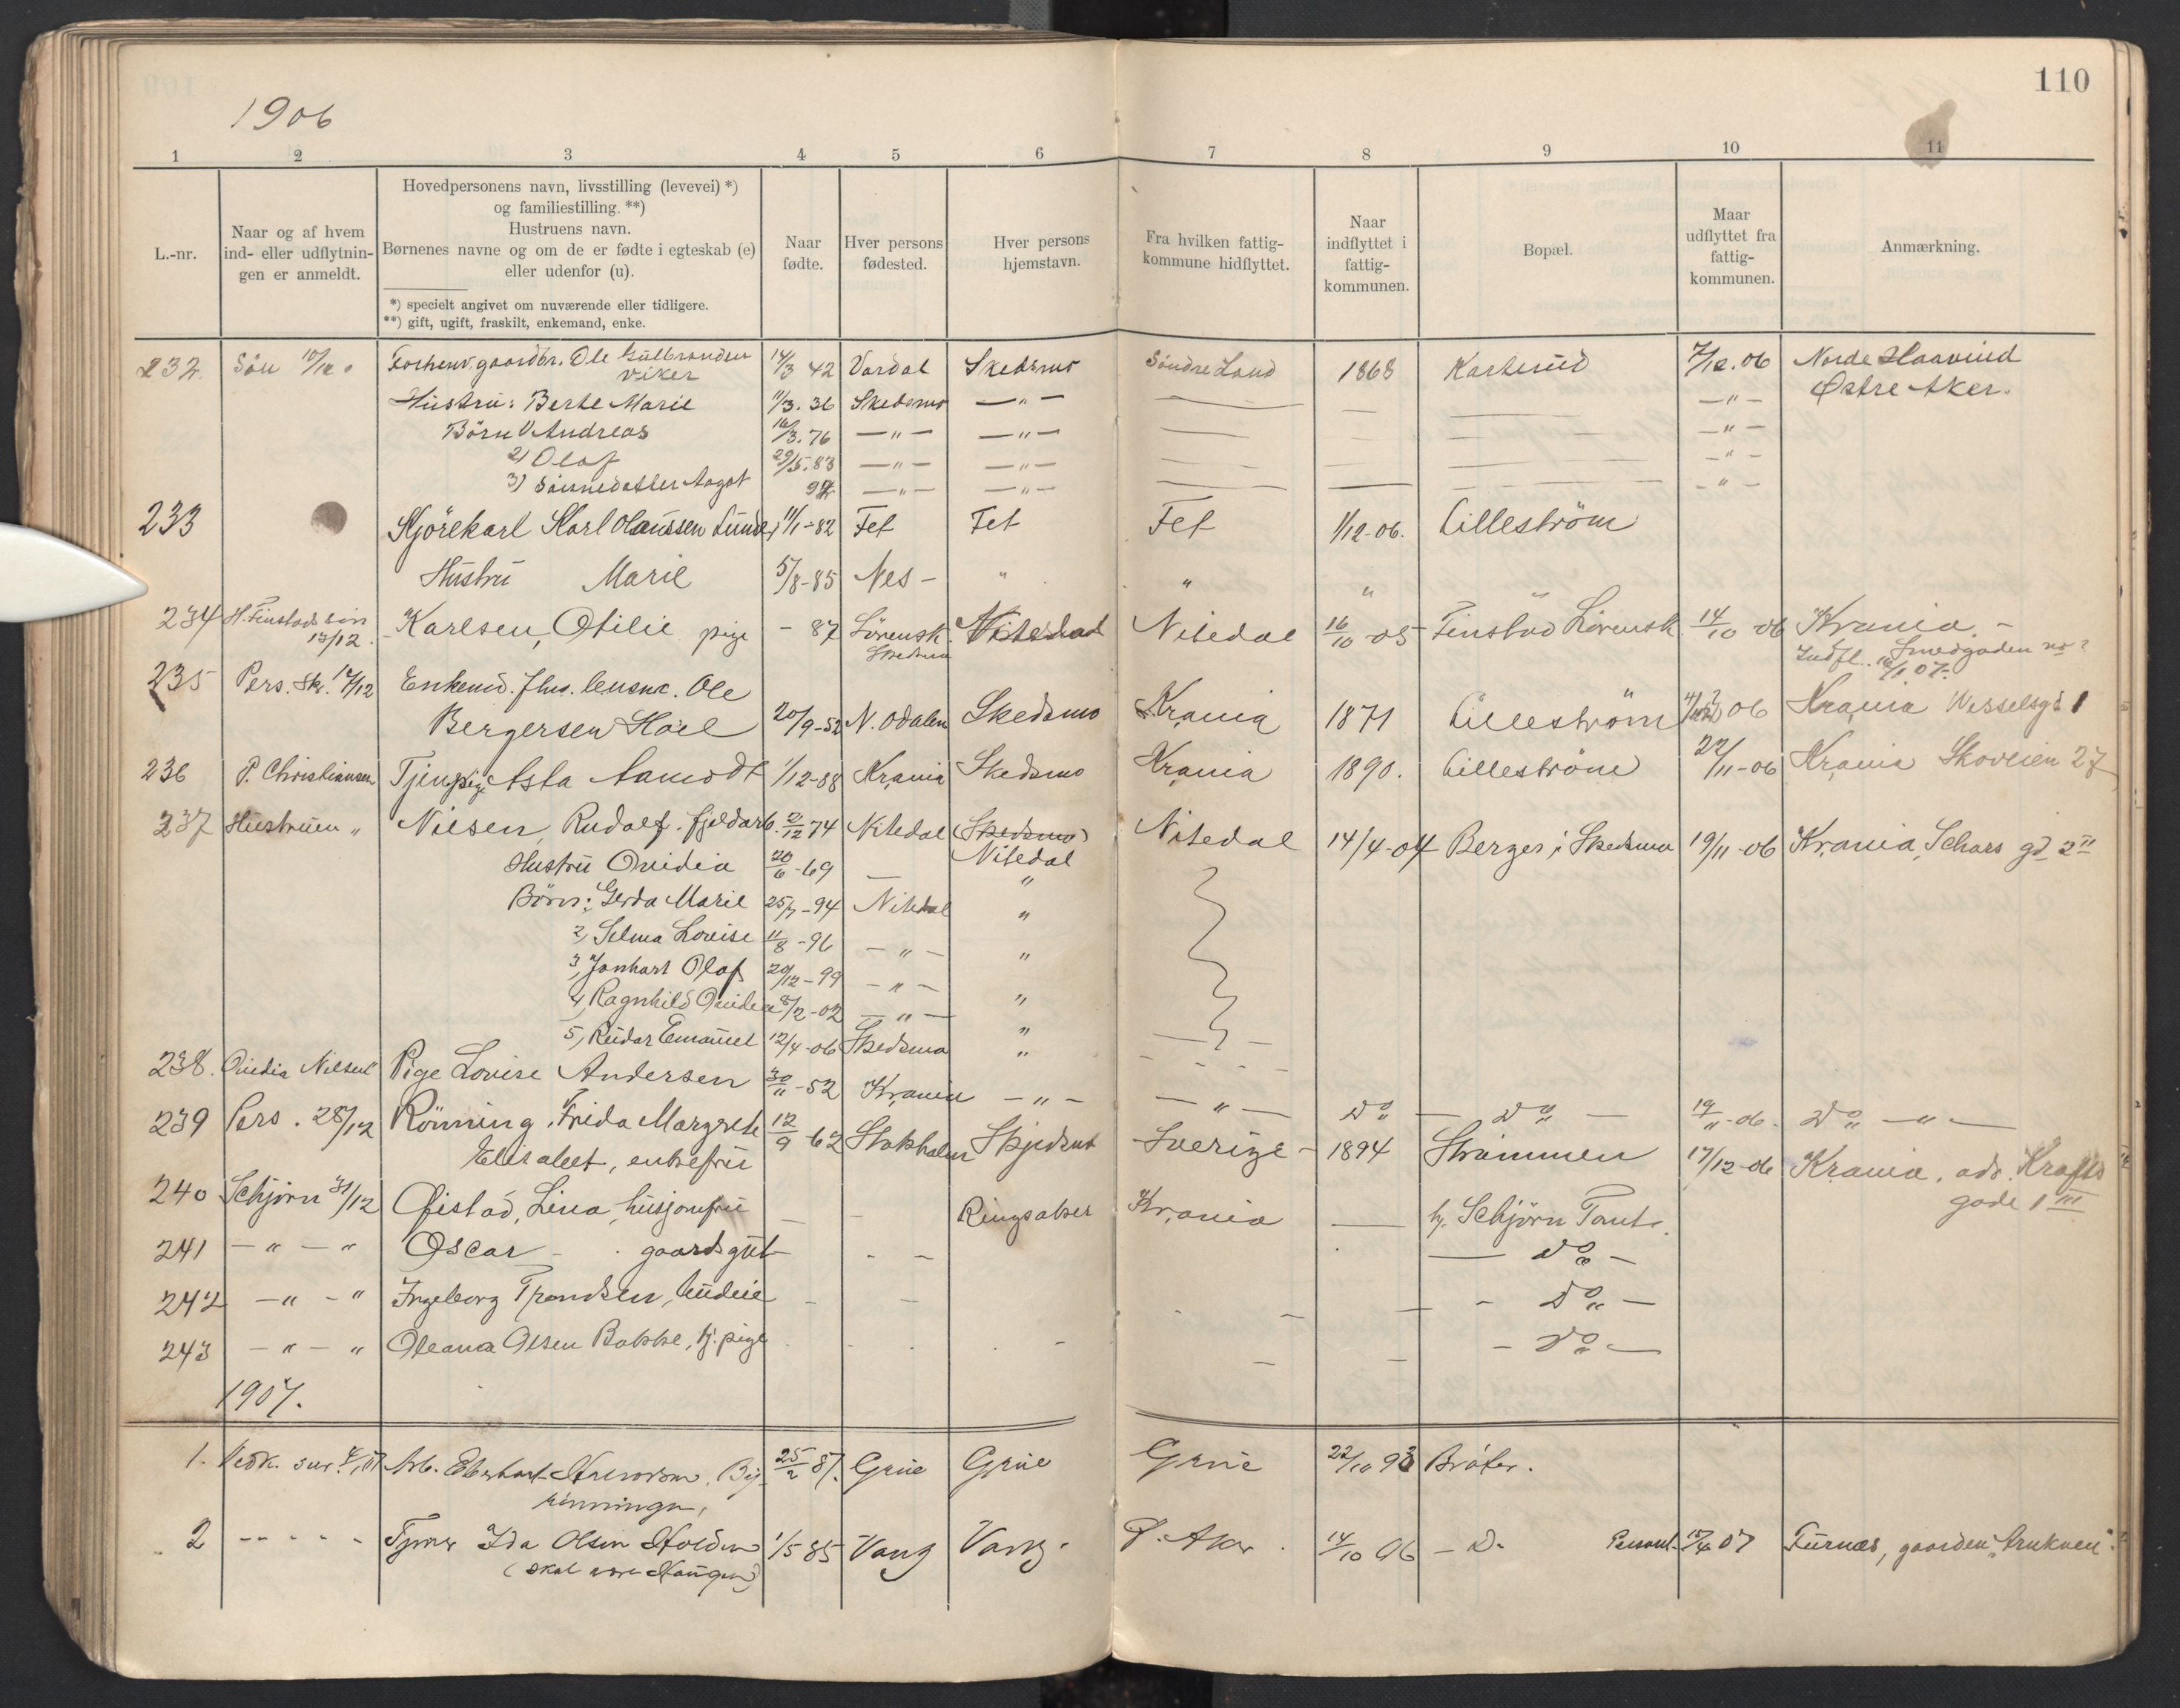 110
1906
1 2 3 4 5 6 7 8 9 10 11
L.-nr.
Naar og af hvem
ind- eller udflytnin-
gen er anmeldt.
Hovedpersonens navn, livsstilling (levevei) *)
og familiestilling. **)
Hustruens navn.
Børnenes navne og om de er fødte i egteskab (e)
eller udenfor (u).
*) specielt angivet om nuværende eller tidligere.
**) gift, ugift, fraskilt, enkemand, enke.
Naar
fødte.
Hver persons
fødested.
Hver persons
hjemstavn.
Fra hvilken fattig-
kommune hidflyttet.
Naar
indflyttet i
fattig-
kommunen.
Bopæl.
Maar
udflyttet fra
fattig-
kommunen.
Anmærkning.
232. Søn Forhenv. gaardbr. Ole Gulbrandsen 14/3 42 Vardal Skedsmo Søndre Land 1868 Karterud 7/12.06 Nordre Haavind
Viker
Hustru: Berte Marie 11/3.36 Skedsmo —"— —"— Østre Aker.
Børn 1) Andreas 16/3.76 —"— —"— —"—
2) Olaf 29/5.83 —"— —"— —"—
3) Sønnedatter Aagot —"— —"— —"—
233 Kjørekarl Karl Olaussen Lunde, 11/1-82 Fet Fet Fet 1/12-06. Lillestrøm
Hustru Marie 5/8-85 Nes - " " "
234 H. Finstads søn 13/12. Karlsen, Otilie pige - 87 Lørensk. Nitedal Nitedal 16/10-05 Finstad Lørensk. 14/10-06 Krania. -
Skedsmo
Smedgaden no ?
Indfl. 16/1 07.
235 Pers. Skr. 17/12 Enkemd. fhv. lensm. Ole
Bergersen Hoel 20/9-52 N. Odalen Skedsmo Krania 1871 Lillestrøm 06 Krania Wesselsgd 1
236 P. Christiansen Tjenpige Asta Aamodt 1/12-88 Krania Skedsmo Krania 1890. Lillestrøm 22/11-06 Krania Skoveien 27
237 Hustruen " Nilsen, Rudolf. fjeldarb. 74 Nitedal (Skedsmo) Nitedal 14/4-04 Berger i Skedsmo 19/11-06 Krania, Schous gd 2 II
Nitedal
Hustru Ovidia 20/6-69 — "
Børn: Gerda Marie 25/7-94 Nitedal "
2, Selma Lovise 11/8-96 —"— "
3, Jonhart Olaf 20/12-99 —"— "
4, Ragnhild Ovidia 8/2-02 —"— "
5, Reidar Emanuel 12/4-06 Skedsmo "
238. Ovidia Nilsen Pige Lovise Andersen 30/11-52 Krania —"— —"— Do — Do — 19/11-06. Do —"—
239 Pers. 28/12 Rønning, Frida Margrete 12/9-62 Stokholm Skjedsmo Sverige - 1894 Strømmen 17/12-06 Krania, adr. Krafts
Elisabet, enkefru
gade 1 III
240 Schjørn 31/12 Øistad, Lina, husjomfru — — Ringsaker Krania — hj. Schjørn Tant.
241 —"—" Oscar - gaardsgut — Do —
242 —"—" Ingeborg Trondsen, budeie - Do —
243 —"—" Oleana Olsen Bakke, tj. pige - Do —
1907.
1. Vedk. Arb. Eberhart 25/2 87. Grue Grue Grue 22/10 93 Bråter.
2 Tjener Ida Olsen Holden 1/5 85 Vang Vang. Ø. Aker. 14/10 06 - Do Personl. 15/4 07 Furnes, gaarden "
(skal være Haugen)